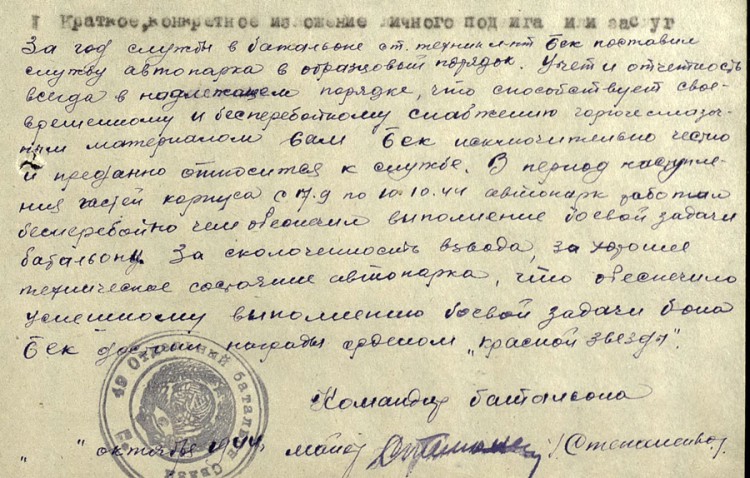 I Краткое, конкретное изложение личного подвига или заслуг
За год службы в батальоне ст. техник л-т Бек поставил
службу автопарка в образцовый порядок. Учет и отчетность
всегда в надлежащем порядке, что способствует свое-
временному и бесперебойному снабжению горючесмазоч-
ным материалом. Сам Бек исключительно честно
и преданно относится к службе. В период наступле-
ния частей корпуса с 17.9 по 10.10.44 автопарк работал
бесперебойно чем обеспечил выполнение боевой задачи
батальону. За сколоченность взвода, за хорошее
техническое состояние автопарка, что обеспечило
успешному выполнению боевой задачи б-на
Бек достоин награды орденом „Красной звезда".
Командир батальона
" " октября 1944г. майор /Степаненко/
49 Отдельный батальон Связи